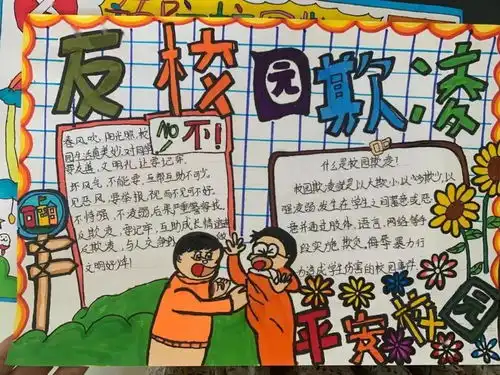 反校园欺凌
NO 不!
春风吹,阳光照,校
园生活真美妙,对同学
要友善,文明礼,让要记牢.
坏风气,不能要,互帮互助不可少.
见恶风,要举报,视而不见可不好.
不恃强,不凌弱,后果严重
反欺凌,要记牢,互助成长情
反欺凌,与人交
文明好少年!
什么是校园欺凌?
校园欺凌就是以大欺小,以多欺少,以
强凌弱,发生在学生之间蓄意或恶
意并通过肢体,语言,网络等手
段实施,欺负,侮辱,暴力行
为造成学生伤害的校园事件.
平安校园